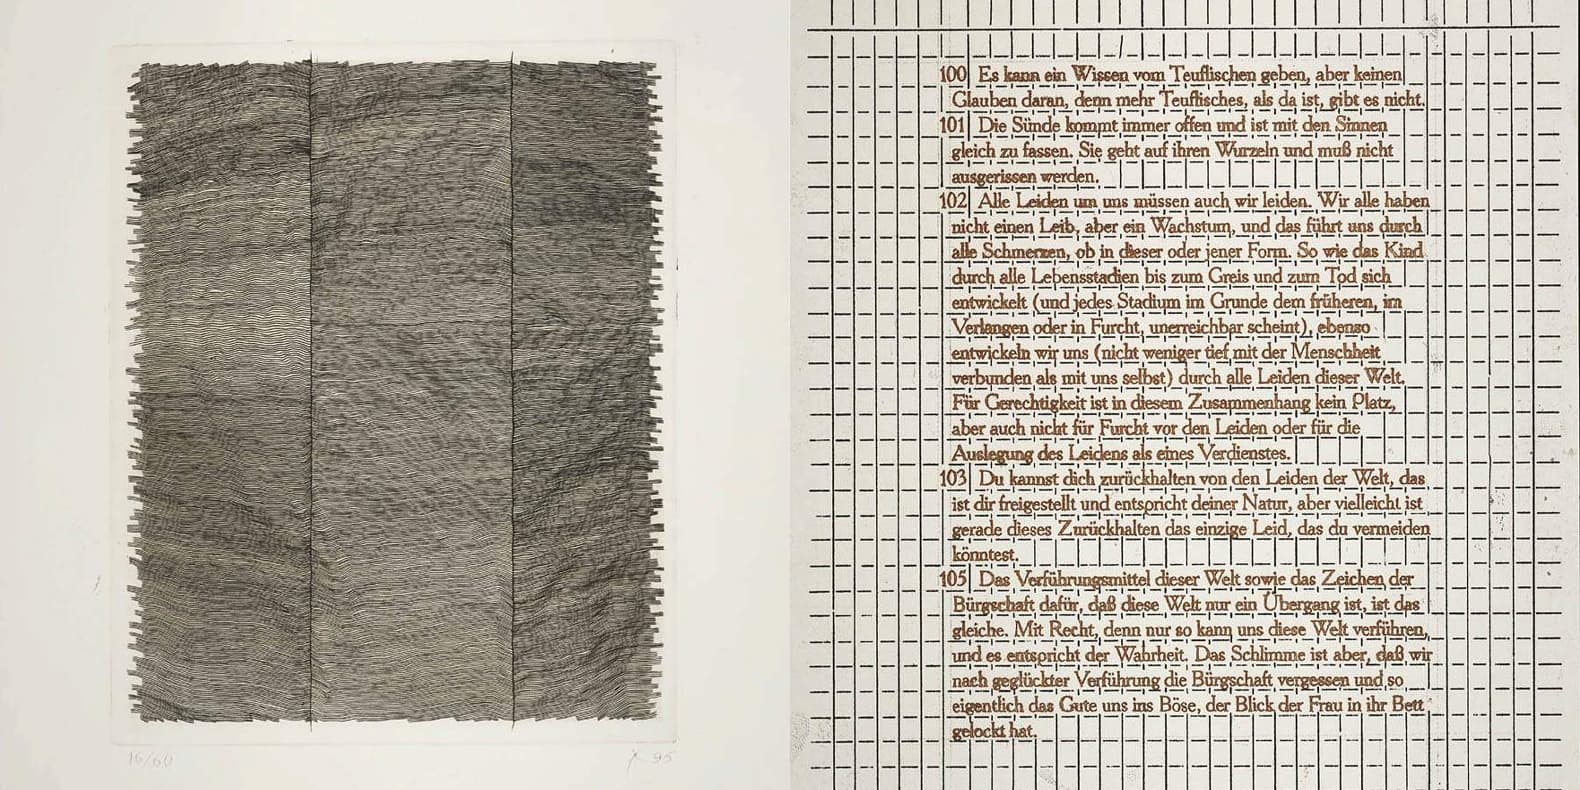 16/60
95
100 Es kann ein Wissen vom Teuflischen geben, aber keinen
Glauben daran, denn mehr Teuflisches, als da ist, gibt es nicht.
101 Die Sünde kommt immer offen und ist mit den Sinnen
gleich zu fassen. Sie geht auf ihren Wurzeln und muß nicht
ausgerissen werden.
102 Alle Leiden um uns müssen auch wir leiden. Wir alle haben
nicht einen Leib, aber ein Wachstum, und das führt uns durch
alle Schmerzen, ob in dieser oder jener Form. So wie das Kind
durch alle Lebensstadien bis zum Greis und zum Tod sich
entwickelt (und jedes Stadium im Grunde dem früheren, im
Verlangen oder in Furcht, unerreichbar scheint), ebenso
entwickeln wir uns (nicht weniger tief mit der Menschheit
verbunden als mit uns selbst) durch alle Leiden dieser Welt.
Für Gerechtigkeit ist in diesem Zusammenhang kein Platz,
aber auch nicht für Furcht vor den Leiden oder für die
Auslegung des Leidens als eines Verdienstes.
103 Du kannst dich zurückhalten von den Leiden der Welt, das
ist dir freigestellt und entspricht deiner Natur, aber vielleicht ist
gerade dieses Zurückhalten das einzige Leid, das du vermeiden
könntest.
105 Das Verführungsmittel dieser Welt sowie das Zeichen der
Bürgschaft dafür, daß diese Welt nur ein Übergang ist, ist das
gleiche. Mit Recht, denn nur so kann uns diese Welt verführen,
und es entspricht der Wahrheit. Das Schlimme ist aber, daß wir
nach geglückter Verführung die Bürgschaft vergessen und so
eigentlich das Gute uns ins Böse, der Blick der Frau in ihr Bett
gelockt hat.